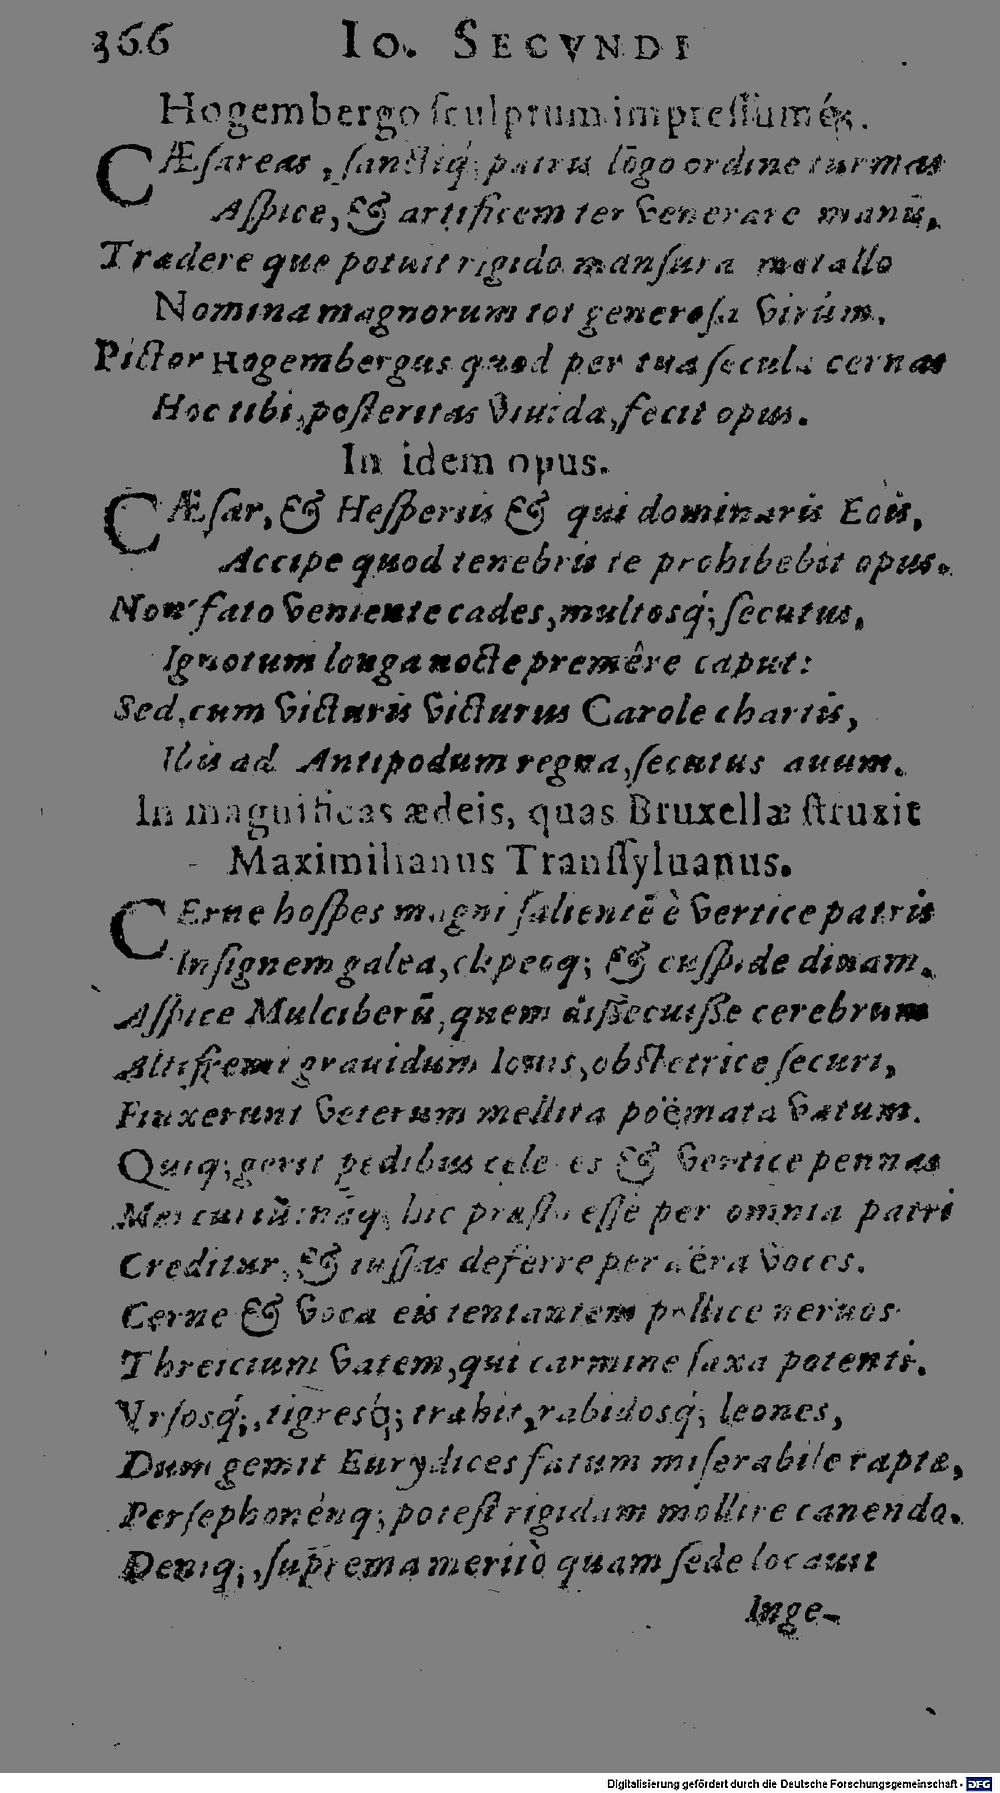 366 IO. SECVNDI
Hogembergo ſculptum impreſſumq́;.
CÆſareas, ſanctiq́; patris lōgo ordine turmas
Aſpice, & artificem ter venerare manū,
Tradere que potuit rigido manſura metallo
Nomina magnorum tot generoſa virûm.
Pictor Hogembergus quod per tua ſecula cernas
Hoc tibi, poſteritas viuida, fecit opus.
In idem opus.
CÆſar, & Heſperiis & qui dominaris Eois,
Accipe quod tenebris te prohibebit opus.
Non fato veniente cades, multosq́; ſecutus,
Ignotum longa nocte premêre caput:
Sed, cum victuris victurus Carole chartis,
Ibis ad Antipodum regna, ſecutus auum.
In magnificas ædeis, quas Bruxellæ ſtruxit
Maximilianus Tranſſyluanus.
CErne hoſpes magni ſalientē è vertice patris
Inſignem galea, clypeoq; & cuſpide diuam.
Aſpice Mulciberū, quem diſſecuiſſe cerebrum
Altifremi grauidum Iouis, obſtetrice ſecuri,
Finxerunt veterum mellita poëmata vatum.
Quiq; gerit pedibus celeres & vertice pennas
Mercuriū: nāq; hic præſto eſſe per omnia patri
Creditur, & iuſſas deferre per aëra voces.
Cerne & voca eis tentantem pollice neruos
Threicium vatem, qui carmine ſaxa potenti.
Vrſosq́;, tigresq́; trahit, rabidosq́; leones,
Dum gemit Eurydices fatum miſerabile raptæ,
Perſephonénq; poteſt rigidam mollire canendo.
Deniq;, ſuprema meritò quam ſede locauit
Inge-
Digitalisierung gefördert durch die Deutsche Forschungsgemeinschaft - DFG